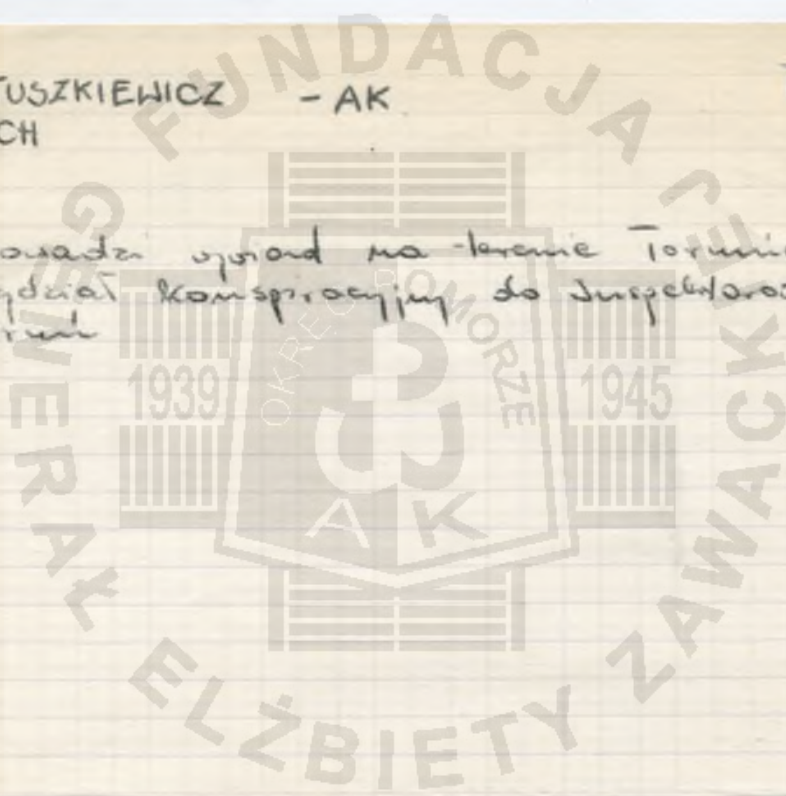 TUSZKIEWICZ - AK
CH
owadzi wywiad na terenie Toruni
ydział konspiracyjny do Inspektora
ruń
FUNDACJA GENERAŁ ELŻBIETY ZAWACKIEJ
OKRĘG POMORZE
1939 1945
AK